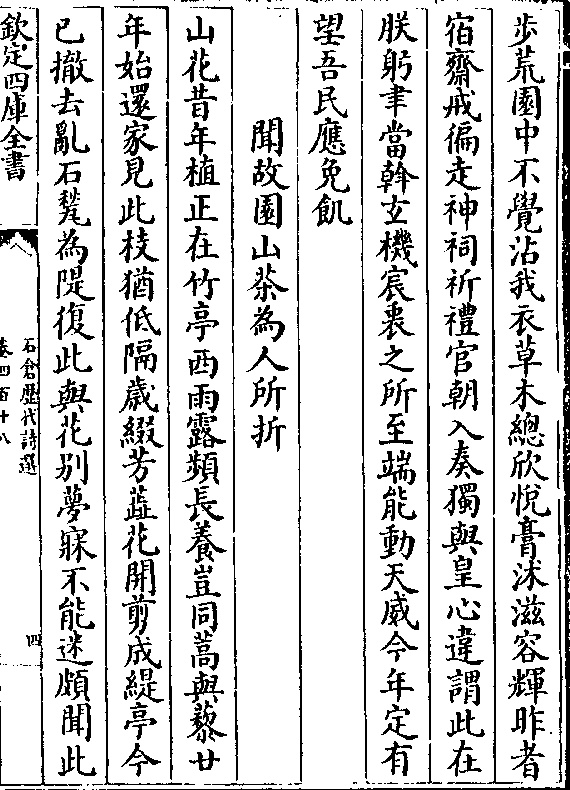 歩荒園中不覺沾我衣草木總欣悅膏沐滋容輝昨者
宿齋戒徧走神祠祈禮官朝入奏獨與皇心違謂此在
朕躬聿當斡玄機宸衷之所至端能動天威今年定有
望吾民應免飢
聞故園山茶為人所折
山花昔年植正在竹亭西雨露頻長養豈同蒿與藜廿
年始還家見此枝猶低隔歳綴芳蕋花開剪成緹亭今
已撤去亂石甃為隄復此與花别夢寐不能迷頗聞此
欽定四庫全書
石倉歴代詩選
卷四百十八
四